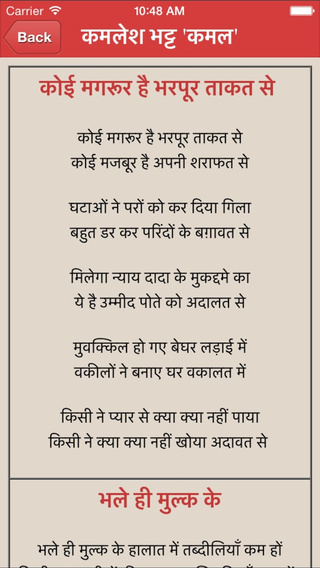 Carrier 10:48 AM
Back
कमलेश भट्ट 'कमल'
कोई मगरूर है भरपूर ताकत से
कोई मगरूर है भरपूर ताकत से
कोई मजबूर है अपनी शराफत से
घटाओं ने परों को कर दिया गिला
बहुत डर कर परिंदों के बग़ावत से
मिलेगा न्याय दादा के मुकद्दमे का
ये है उम्मीद पोते को अदालत से
मुवक्किल हो गए बेघर लड़ाई में
वकीलों ने बनाए घर वकालत में
किसी ने प्यार से क्या क्या नहीं पाया
किसी ने क्या क्या नहीं खोया अदावत से
भले ही मुल्क के
भले ही मुल्क के हालात में तब्दीलियाँ कम हों